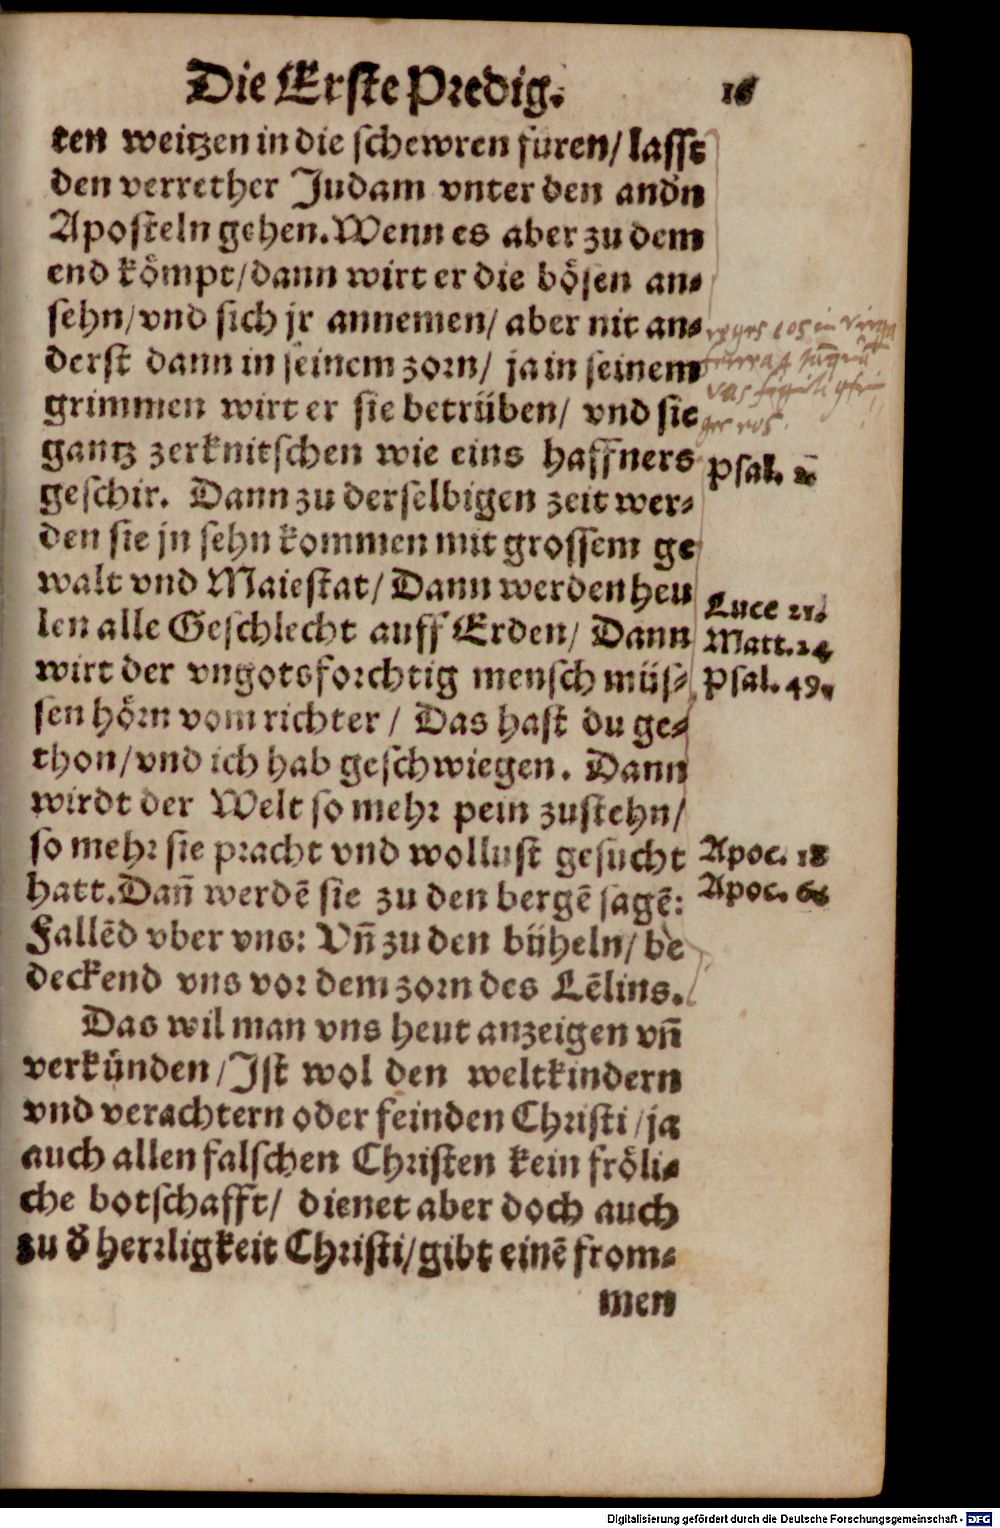 Die Erste Predig. 16
ten weitzen in die schewren füren/ lasst
den verrether Judam vnter den andn̄
Aposteln gehen. Wenn es aber zu dem
end kömpt/ dann wirt er die bösen an-
sehn/ vnd sich jr annemen/ aber nit an-
derst dann in seinem zorn/ ja in seinem
grimmen wirt er sie betrüben/ vnd sie
gantz zerknitschen wie eins haffners
Psal.
geschir. Dann zu derselbigen zeit wer-
den sie jn sehn kommen mit grossem ge
walt vnd Maiestat/ Dann werden heu
Luce 21.
len alle Geschlecht auff Erden/ Dann
Matt. 24
wirt der vngotsforchtig mensch müs-
Psal. 49.
sen hörn vom richter/ Das hast du ge-
thon/ vnd ich hab geschwiegen. Dann
wirdt der Welt so mehr pein zustehn/
so mehr sie pracht vnd wollust gesucht
Apoc. 18
hatt. Dañ werdē sie zu den bergē sagē:
Apoc. 6.
Fallēd vber vns: Vñ zu den büheln/ be
deckend vns vor dem zorn des Lēlins.
Das wil man vns heut anzeigen vñ
verkünden/ Ist wol den weltkindern
vnd verachtern oder feinden Christi/ ja
auch allen falschen Christen kein fröli-
che botschafft/ dienet aber doch auch
zu d̄ herrligkeit Christi/ gibt einē from-
men
Digitalisierung gefördert durch die Deutsche Forschungsgemeinschaft - DFG